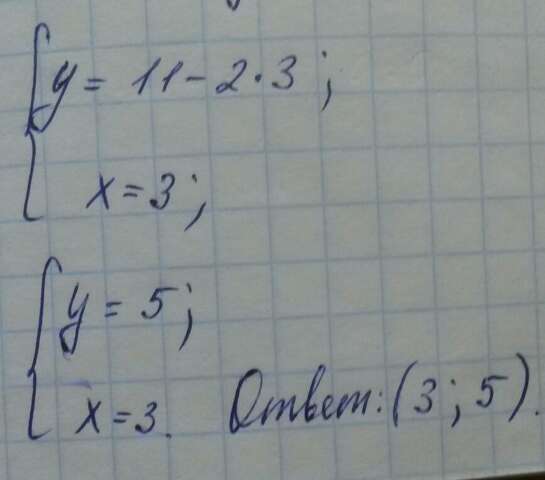 y = 11 - 2 · 3;
x = 3;
y = 5;
x = 3. Ответ: (3; 5).